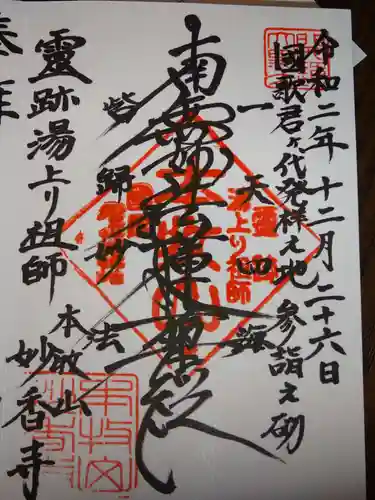 令和二年十二月二十六日
国歌君ヶ代発祥之地 参詣之砌
一天四海
南無妙法蓮華経
皆歸妙法
本牧山
妙香寺
靈跡湯上り祖師
奉拝
靈跡
湯上り祖師